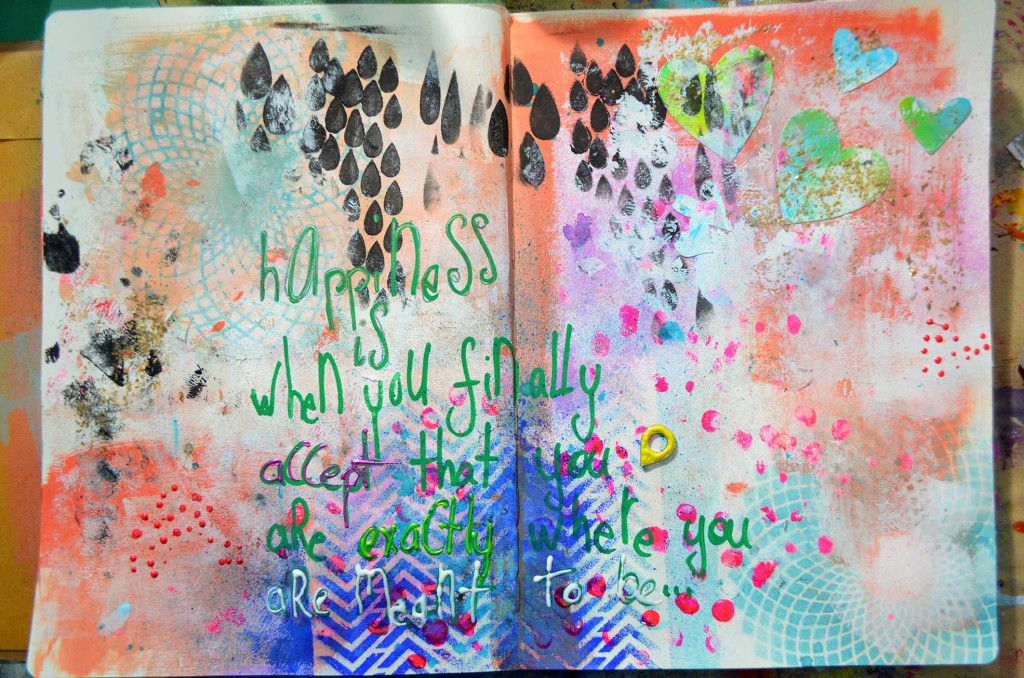 happiness
is
when you finally
accept that you
aRe exactly where you
aRe meant to be...